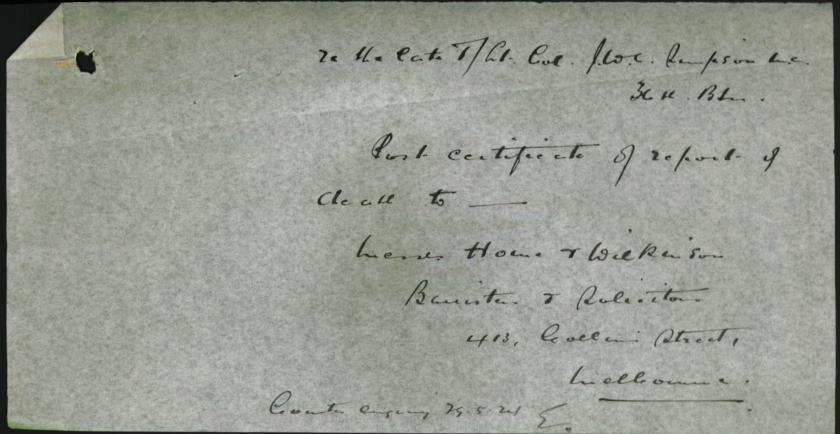 re the late T/Lt. Col. J.W.C. Simpson M.C.
Bln.
Post certificate of report of
death to —
Messrs Home & Wilkinson
Barristers & Solicitors
413, Collins Street,
Melbourne.
Counter enquiry 29.5.24